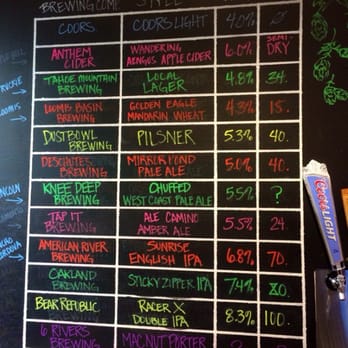 BREWING COMP. STYLE
COORS COORS LIGHT 4.0%
ANTHEM CIDER WANDERING AENGUS APPLE CIDER 6.0% SEMI-DRY
TAHOE MOUNTAIN BREWING LOCAL LAGER 4.8% 34.
LOOMIS BASIN BREWING GOLDEN EAGLE MANDARIN WHEAT 4.3% 15.
DUST BOWL BREWING PILSNER 5.3% 40.
DESCHUTES BREWING MIRROR POND PALE ALE 5.0% 40.
KNEE DEEP BREWING CHUFFED WEST COAST PALE ALE 5.5% ?
TAP IT BREWING ALE CAMINO AMBER ALE 5.5% 24.
AMERICAN RIVER BREWING SUNRISE ENGLISH IPA 6.8% 70.
OAKLAND BREWING STICKY ZIPPER IPA 7.4% 80.
BEAR REPUBLIC RACER X DOUBLE IPA 8.3% 100.
6 RIVERS BREWING MACNUT PORTER
TRUCKEE
LOOMIS
LINCOLN
Coors LIGHT